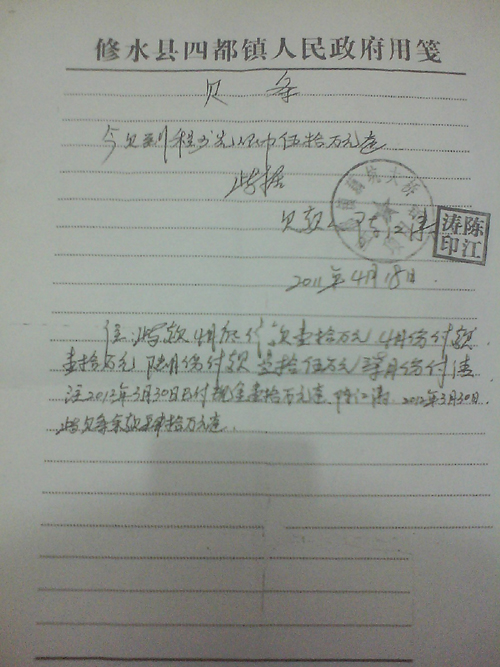 修水县四都镇人民政府用笺
欠 条
今欠到程 人民币伍拾万元整
此据
欠款人 陈江涛
陈江
涛印
2011年4月18日
注:此款4月 付款壹拾万元 4月份付款
壹拾万元 陆月份付款 拾伍万元 月份付清
注2012年3月30日已付现金壹拾万元整 陈江涛 2012年3月30日
此欠条余款 肆拾万元整